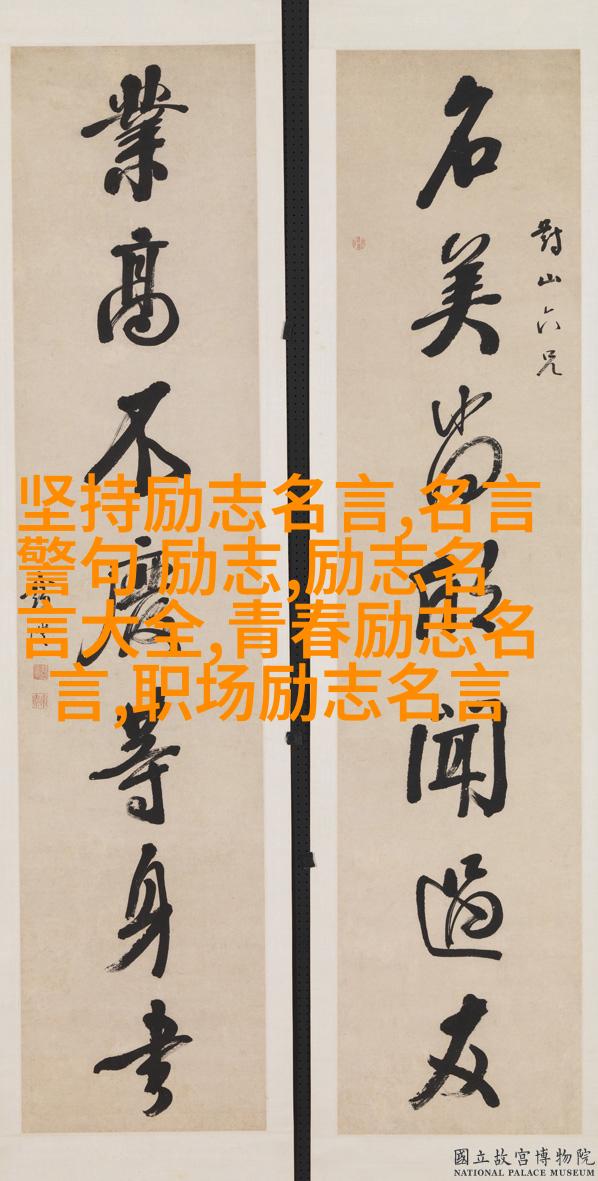 對山六兄
名美尚欣聞過友
業高不廢等身書
坚持励志名言,名言
警句 励志,励志名
言大全,青春励志名
言,职场励志名言
國立故宮博物院
NATIONAL PALACE MUSEUM